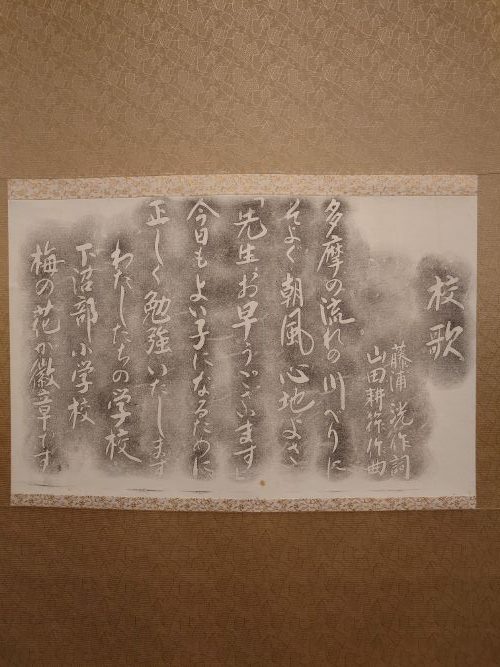 校歌
藤浦洸作詞
山田耕筰作曲
多摩の流れの川べりに
そよぐ朝風心地よさ
「先生お早うございます」
今日もよい子になるために
正しく勉強いたします
わたしたちの学校
下沼部小学校
梅の花が徽章です